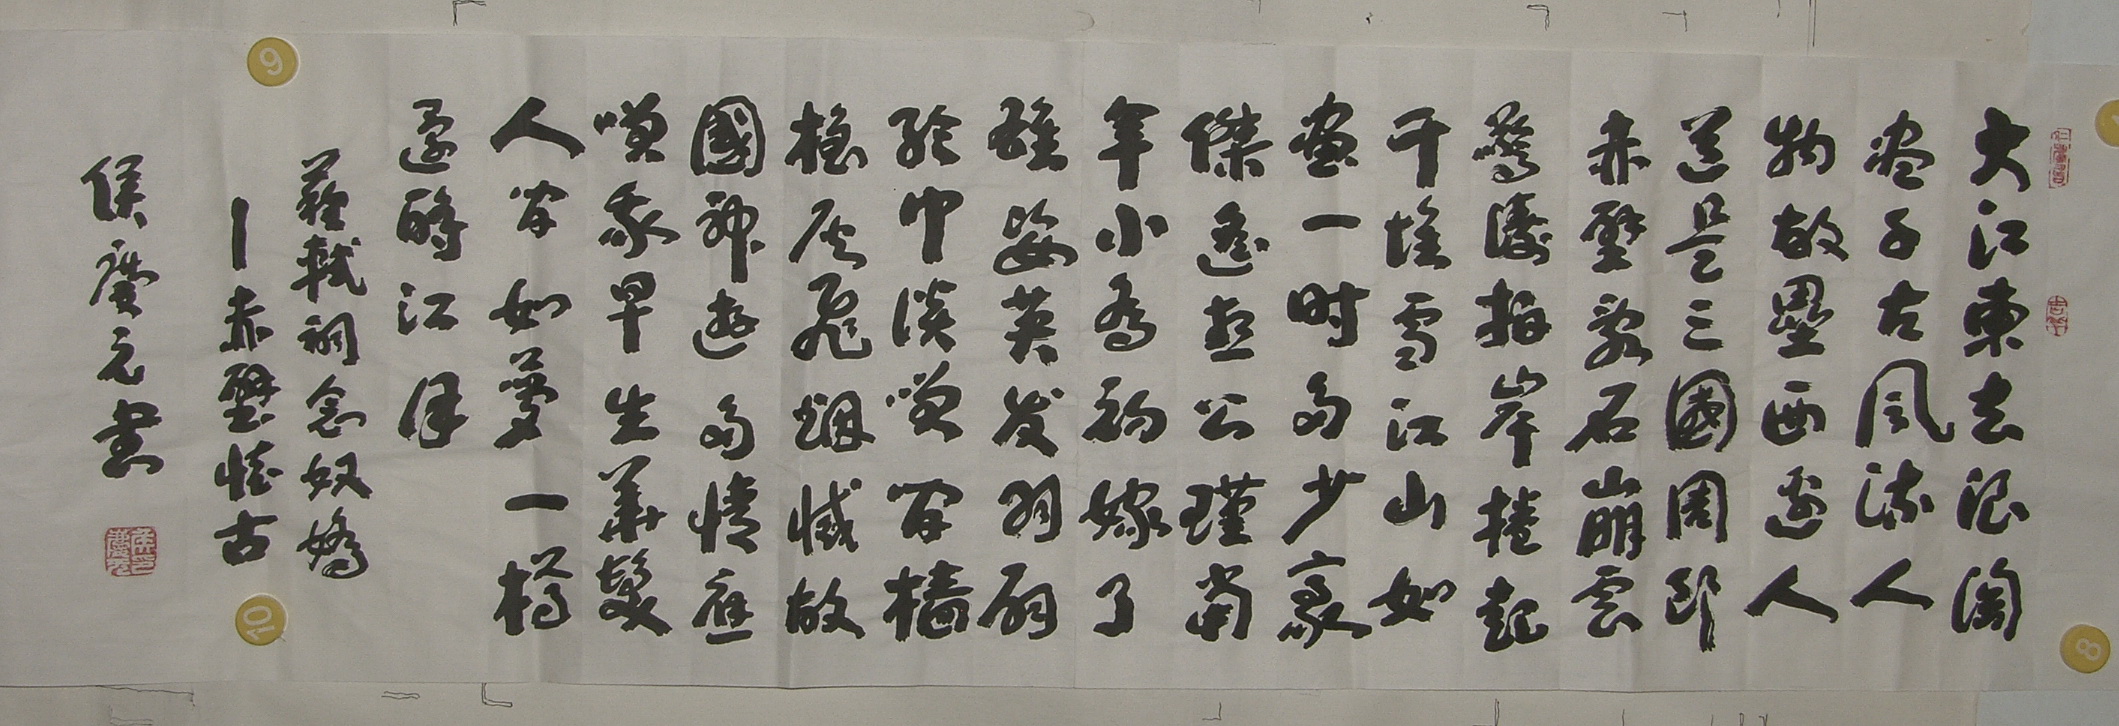 大江東去浪淘
盡千古風流人
物故壘西邊人
道是三國周郎
赤壁亂石崩雲
驚濤拍岸捲起
千堆雪江山如
畫一时多少豪
傑遙想公瑾當
年小喬初嫁了
雄姿英发羽扇
綸巾談笑間檣
櫓灰飛烟滅故
國神遊多情應
笑我早生華髮
人間如夢一樽
還酹江月
蘇軾詞念奴嬌
—赤壁懷古
侯慶元書
9
10
8